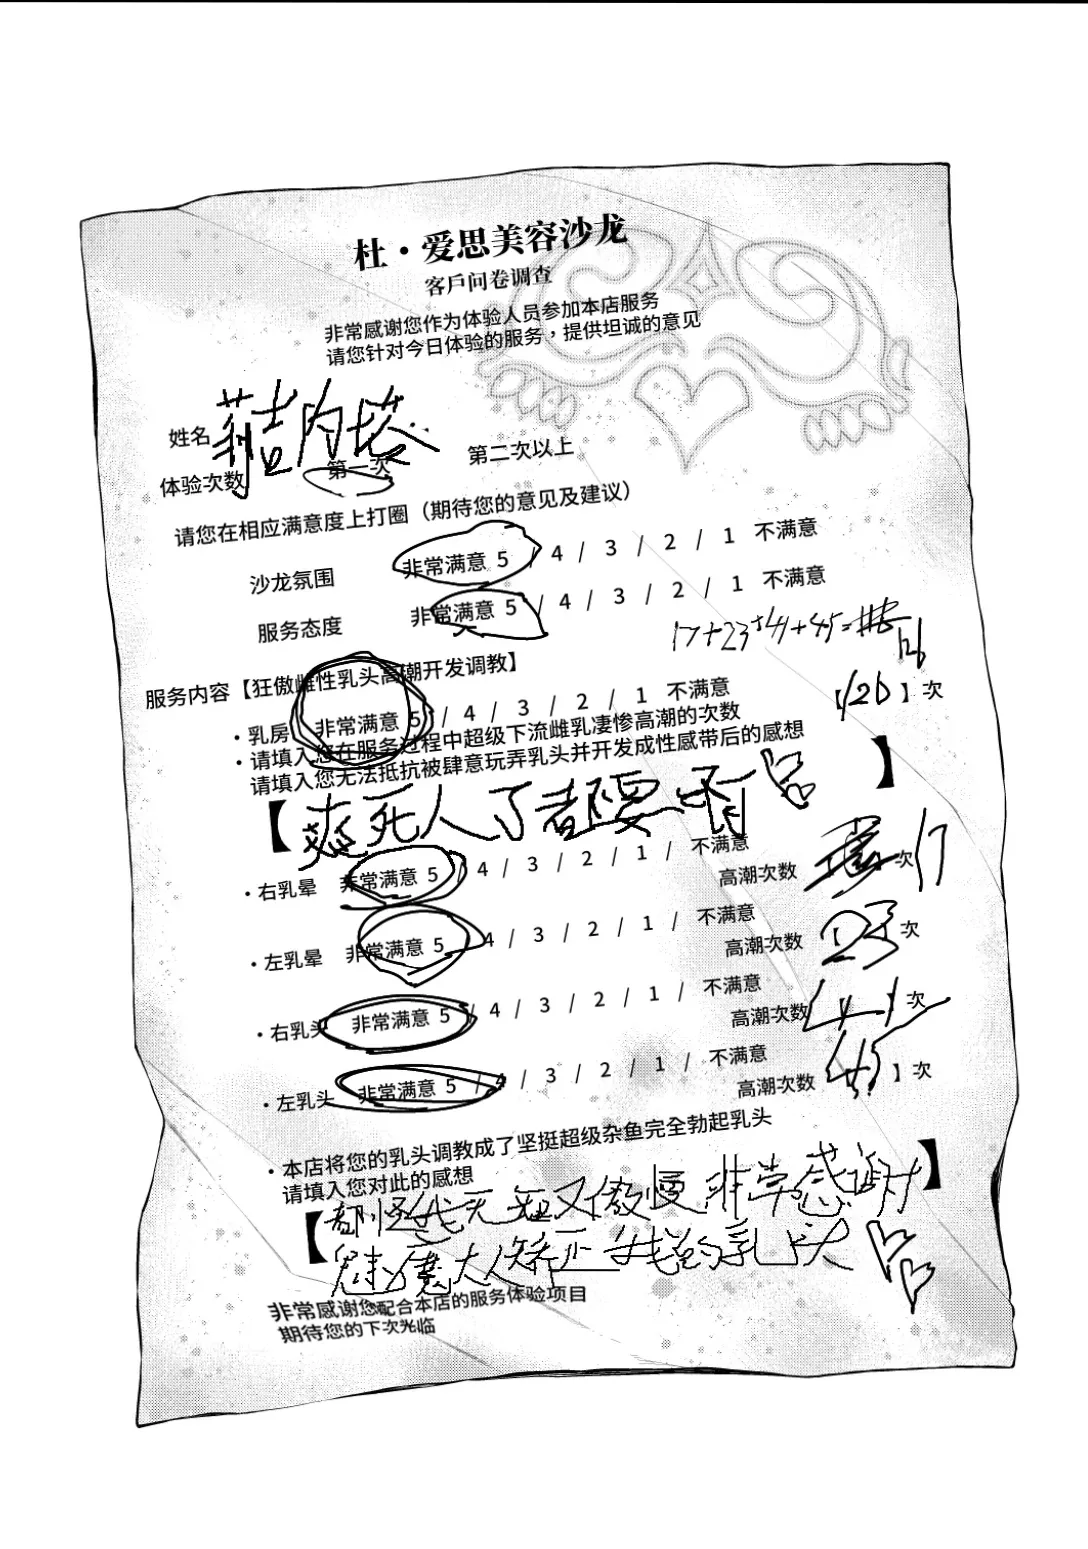 杜・爱思美容沙龙
客戶问卷调查
非常感谢您作为体验人员参加本店服务
请您针对今日体验的服务，提供坦诚的意见
姓名 莉吉内塔
体验次数 第一次 第二次以上
请您在相应满意度上打圈（期待您的意见及建议）
沙龙氛围 非常满意 5 / 4 / 3 / 2 / 1 不满意
服务态度 非常满意 5 / 4 / 3 / 2 / 1 不满意
17+23+41+45=
126
服务内容【狂傲雌性乳头高潮开发调教】
・乳房 非常满意 5 / 4 / 3 / 2 / 1 不满意
・请填入您在服务过程中超级下流雌乳凄惨高潮的次数 【126】次
请填入您无法抵抗被肆意玩弄乳头并开发成性感带后的感想
【爽死人了都要 】
・右乳晕 非常满意 5 / 4 / 3 / 2 / 1 / 不满意 高潮次数 次 17
・左乳晕 非常满意 5 / 4 / 3 / 2 / 1 / 不满意 高潮次数 23 次
・右乳头 非常满意 5 / 4 / 3 / 2 / 1 / 不满意 高潮次数 41 次
・左乳头 非常满意 5 / 4 / 3 / 2 / 1 / 不满意 高潮次数 45 】次
・本店将您的乳头调教成了坚挺超级杂鱼完全勃起乳头
请填入您对此的感想
【都怪我无知又傲慢非常感谢
魅魔大人矫正我的乳头 】
非常感谢您配合本店的服务体验项目
期待您的下次光临